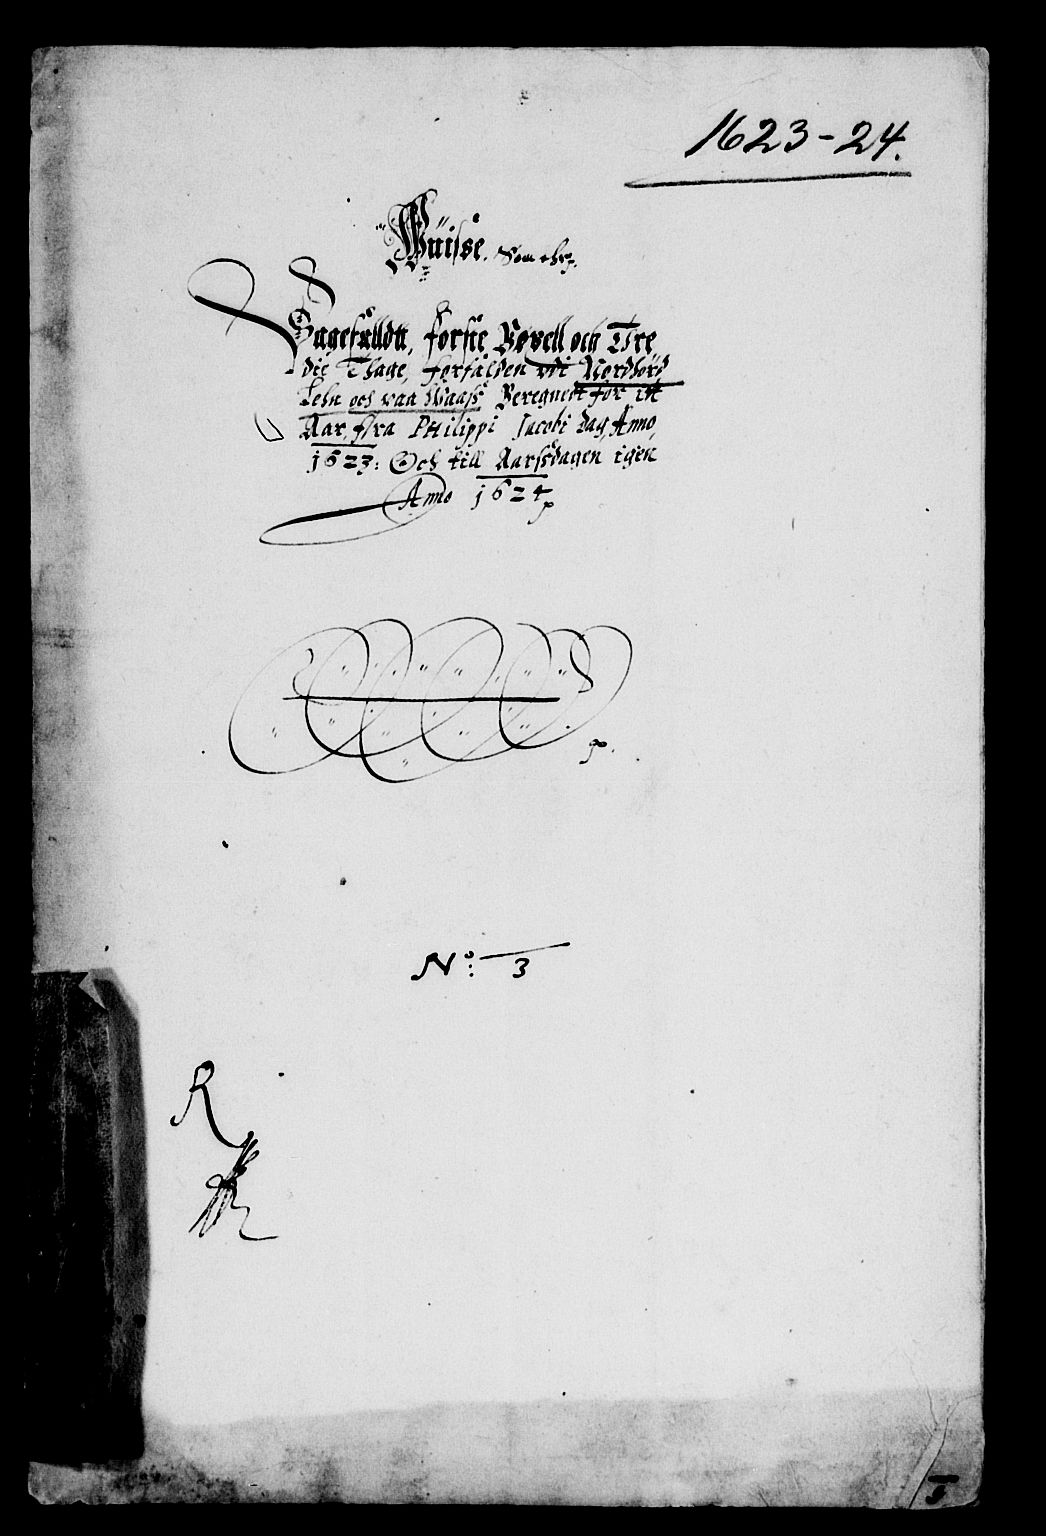 1623-24.
Wüisse
Sagefalldt, førsie Bøxell och Tre
die Thage, forfalden vdi Nordhörd
Lehn och paa Waass Beregnedt for itt
Aar, ffra Philippi Jacobi dag, Anno,
1623: Och till Aarssdagen igen
Anno 1624
No: 3
R